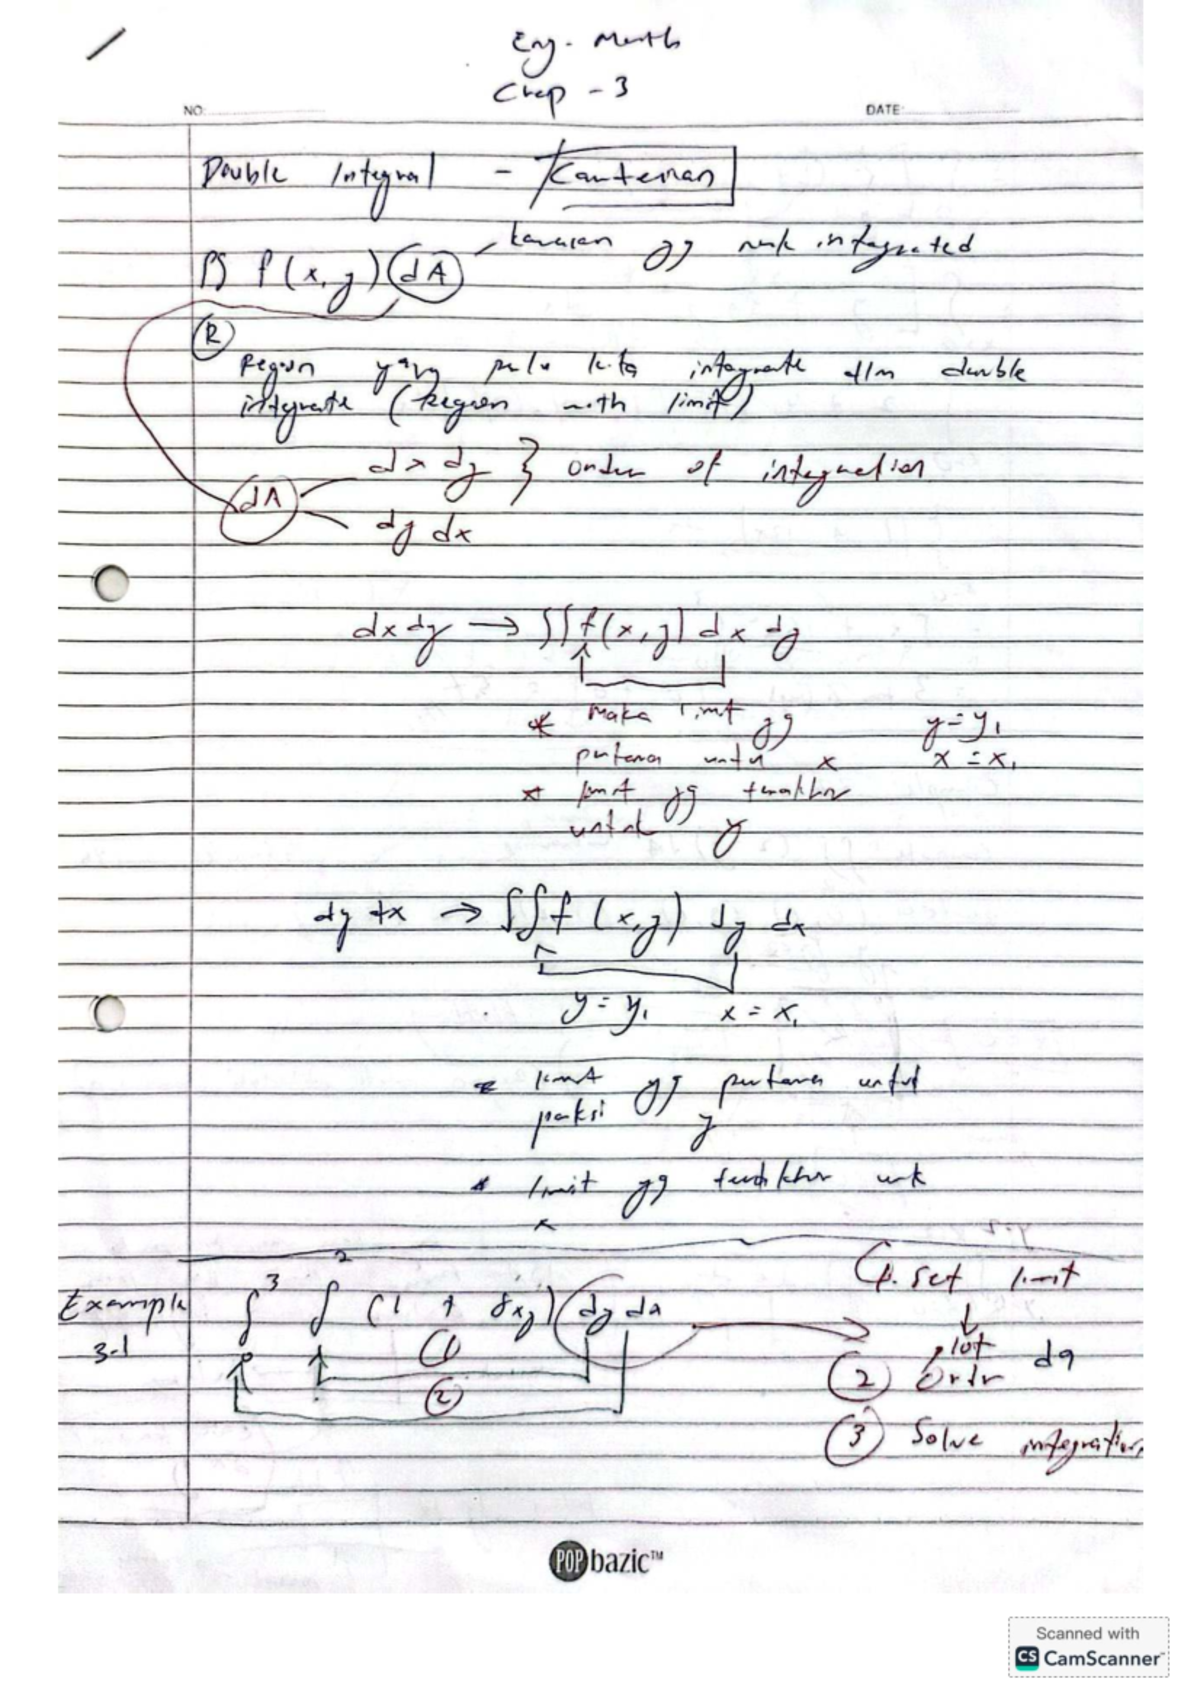 Eng. Math
Chap - 3
NO:
DATE:
Double Integral - Cartesian
∬ f(x, y) dA
kawasan yg nak integrated
R
Region yang perlu kita integrate dlm double
integrate (Region with limit)
dA
dx dy } order of integration
dy dx
dx dy → ∬ f(x, y) dx dy
* Maka limit yg
pertama untuk x
y = y₁
x = x₁
* limit yg terakhir
untuk y
dy dx → ∬ f(x, y) dy dx
y = y₁ x = x₁
* limit yg pertama untuk
paksi y
* limit yg terakhir unk
x
Example
3-1
∫ 3 ∫ 2 (1 + 8xy) dy dx
0
①
②
set limit
↓
plot
② Order da
③ Solve integration
POP bazic™
Scanned with
CS CamScanner